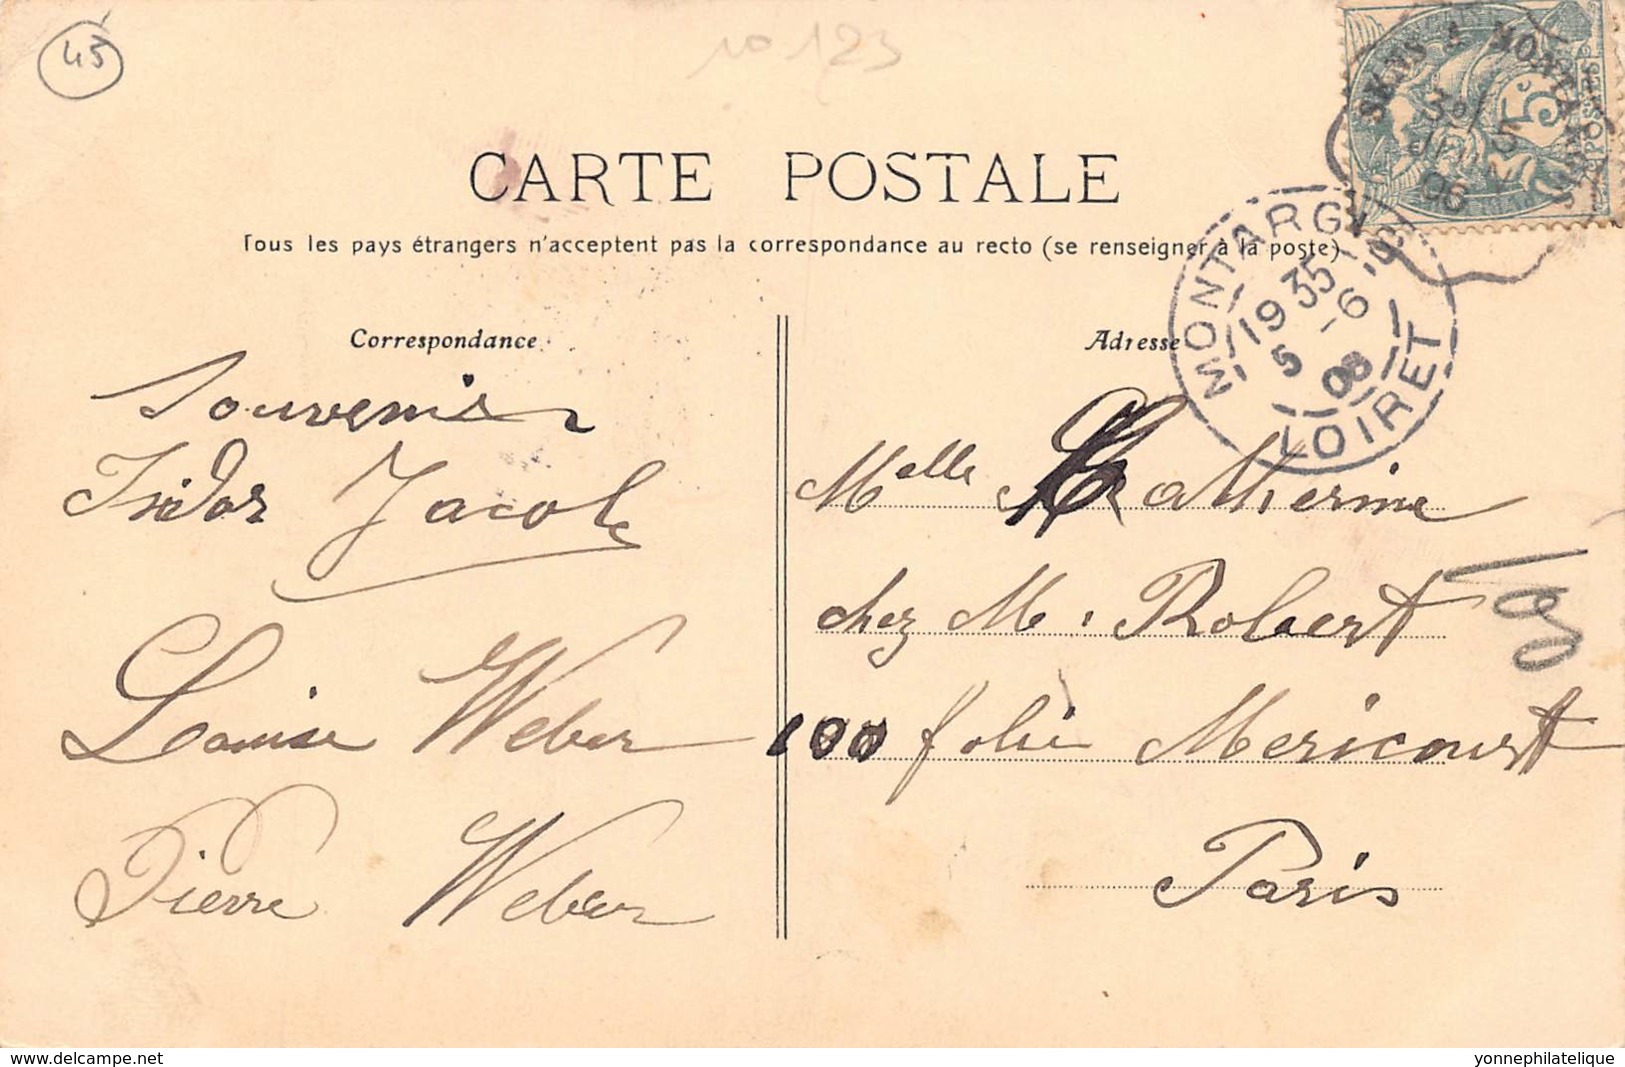 45
10123
CARTE POSTALE
Tous les pays étrangers n'acceptent pas la correspondance au recto (se renseigner à la poste)
Correspondance
Adresse
MONTARGIS
19 35
5 -6
08
LOIRET
5
POSTES
Souvenir
Isidor Jacob
Louise Weber
Pierre Weber
Melle Catherine
chez M. Robert
100 folie Mericourt
Paris
www.delcampe.net
yonnephilatelique